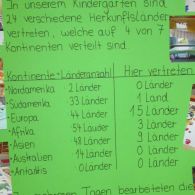 In unserem Kindergarten sind
24 verschiedene Herkunftsländer
vertreten, welche auf 4 von 7
Kontinenten verteilt sind.
Kontinente Länderanzahl Hier vertreten
Nordamerika 2 Länder 0 Länder
Südamerika 33 Länder 1 Land
Europa 44 Länder 15 Länder
Afrika 54 Länder 3 Länder
Asien 48 Länder 9 Länder
Australien 14 Länder 0 Länder
Antarktis 0 Länder 0 Länder
Tagen bearbeiten die